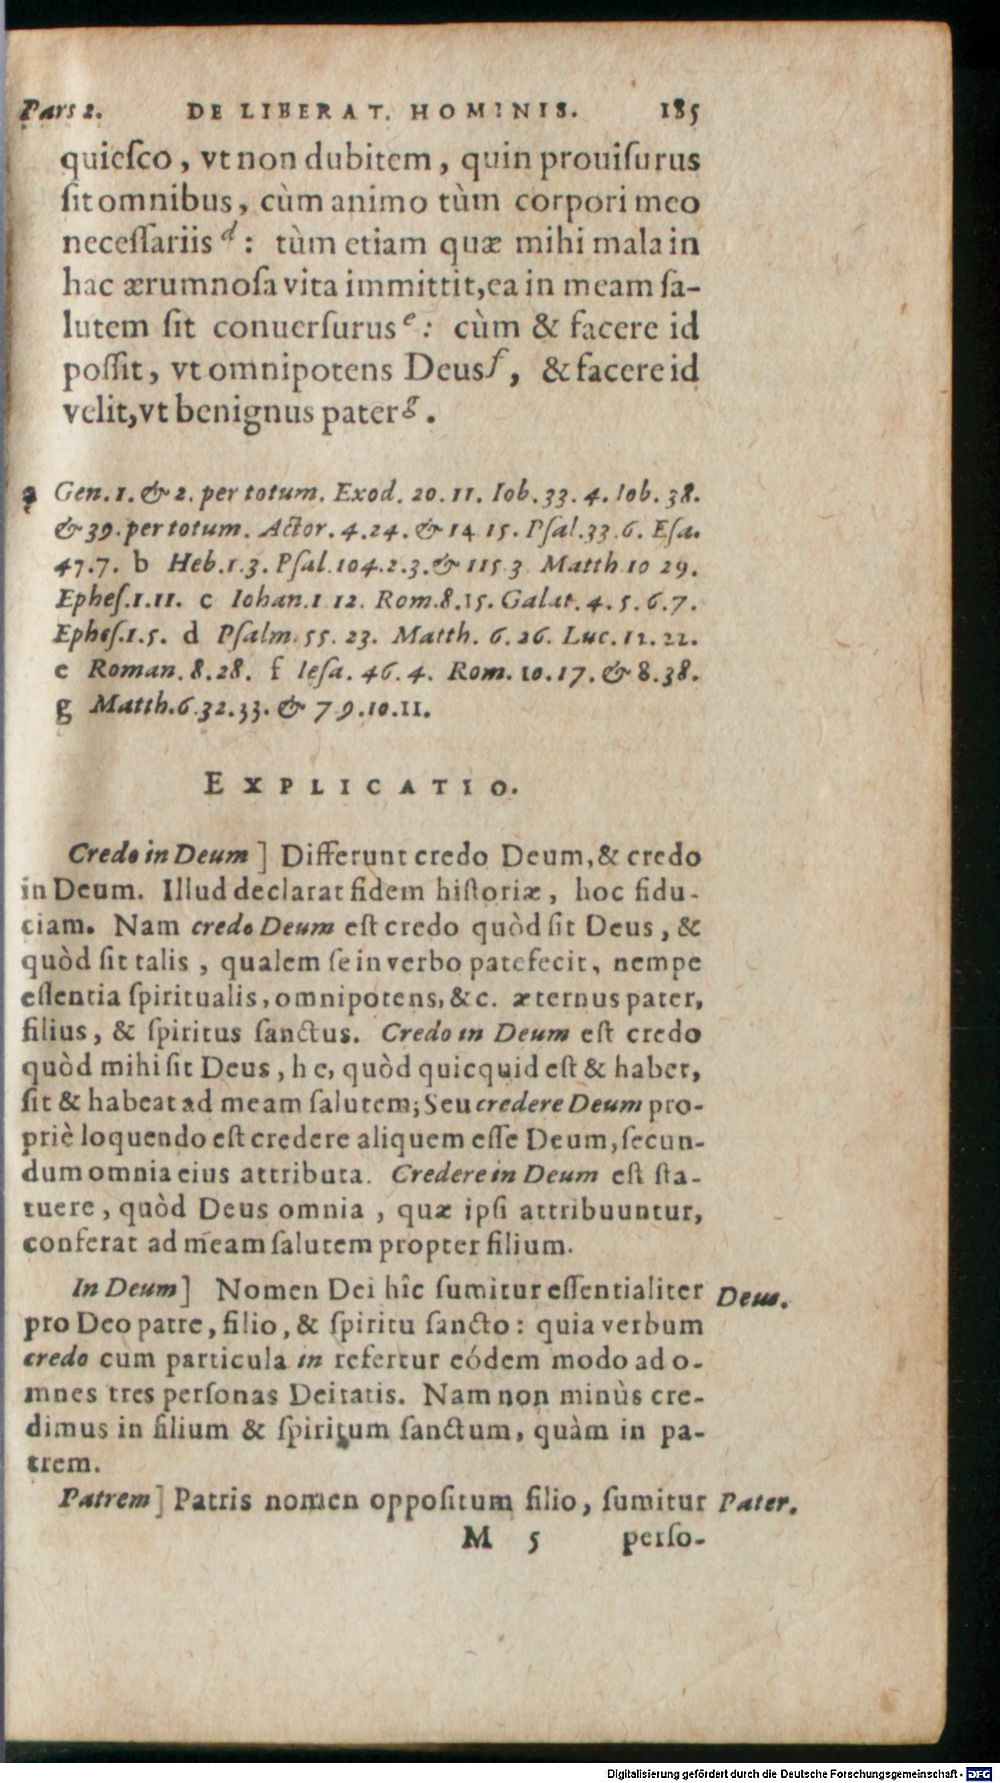 Pars 2. DE LIBERAT. HOMINIS. 185
quiesco, vt non dubitem, quin prouisurus
sit omnibus, cùm animo tùm corpori meo
necessariis d: tùm etiam quæ mihi mala in
hac ærumnosa vita immittit, ea in meam sa-
lutem sit conuersurus e: cùm & facere id
possit, vt omnipotens Deus f, & facere id
velit, vt benignus pater g.
a Gen. 1. & 2. per totum. Exod. 20. 11. Iob. 33. 4. Iob. 38.
& 39. per totum. Actor. 4. 24. & 14 15. Psal. 33. 6. Esa.
47. 7. b Heb. 1. 3. Psal. 104. 2. 3. & 115. 3 Matth 10 29.
Ephes. 1. 11. c Iohan. 1 12. Rom. 8. 15. Galat. 4. 5. 6. 7.
Ephes. 1. 5. d Psalm. 55. 23. Matth. 6. 26. Luc. 12. 22.
e Roman. 8. 28. f Iesa. 46. 4. Rom. 10. 17. & 8. 38.
g Matth. 6. 32. 33. & 7 9. 10. 11.
EXPLICATIO.
Credo in Deum] Differunt credo Deum, & credo
in Deum. Illud declarat fidem historiæ, hoc fidu-
ciam. Nam credo Deum est credo quòd sit Deus, &
quòd sit talis, qualem se in verbo patefecit, nempe
essentia spiritualis, omnipotens, &c. æternus pater,
filius, & spiritus sanctus. Credo in Deum est credo
quòd mihi sit Deus, h e, quòd quicquid est & habet,
sit & habeat ad meam salutem; Seu credere Deum pro-
priè loquendo est credere aliquem esse Deum, secun-
dum omnia eius attributa. Credere in Deum est sta-
tuere, quòd Deus omnia, quæ ipsi attribuuntur,
conferat ad meam salutem propter filium.
In Deum] Nomen Dei hîc sumitur essentialiter Deus.
pro Deo patre, filio, & spiritu sancto: quia verbum
credo cum particula in refertur eódem modo ad o-
mnes tres personas Deitatis. Nam non minùs cre-
dimus in filium & spiritum sanctum, quàm in pa-
trem.
Patrem] Patris nomen oppositum filio, sumitur Pater.
M 5 perso-
Digitalisierung gefördert durch die Deutsche Forschungsgemeinschaft - DFG